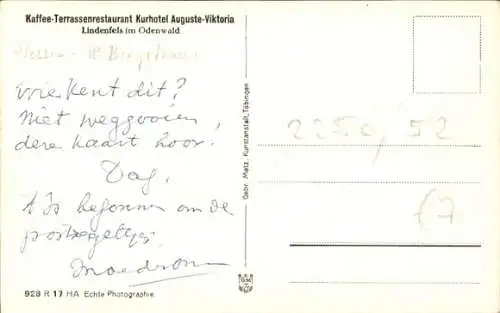 Kaffee-Terrassenrestaurant Kurhotel Auguste-Viktoria
Lindenfels im Odenwald
Hessen - Kr Bergstrasse
wie kent dit?
Niet weggooien,
deze kaart hoor.
Dag,
't Is begonnen om de
postzegeltjes
Gebr. Metz, Kunstanstalt, Tübingen
52
€7
928 R 17 HA Echte Photographie